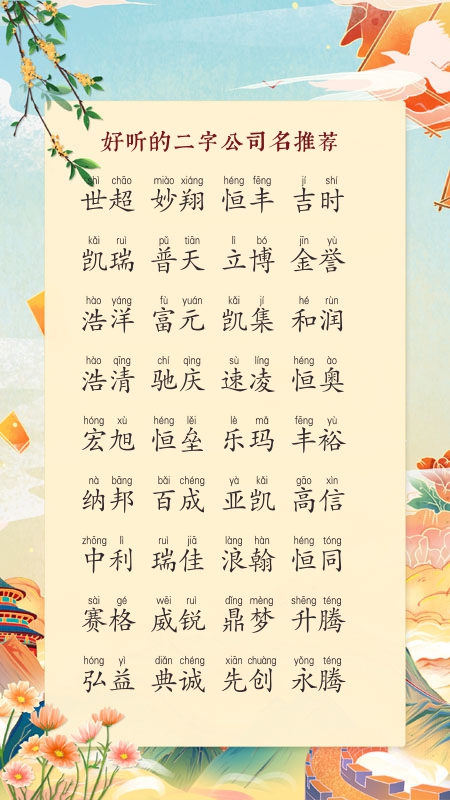 好听的二字公司名推荐
shì chāo miào xiáng héng fēng jí shí
世超 妙翔 恒丰 吉时
kǎi ruì pǔ tiān lì bó jīn yù
凯瑞 普天 立博 金誉
hào yáng fù yuán kǎi jí hé rùn
浩洋 富元 凯集 和润
hào qīng chí qìng sù líng héng ào
浩清 驰庆 速凌 恒奥
hóng xù héng lěi lè mǎ fēng yù
宏旭 恒垒 乐玛 丰裕
nà bāng bǎi chéng yà kǎi gāo xìn
纳邦 百成 亚凯 高信
zhōng lì ruì jiā làng hàn héng tóng
中利 瑞佳 浪翰 恒同
sài gé wēi ruì dǐng mèng shēng téng
赛格 威锐 鼎梦 升腾
hóng yì diǎn chéng xiān chuàng yǒng téng
弘益 典诚 先创 永腾